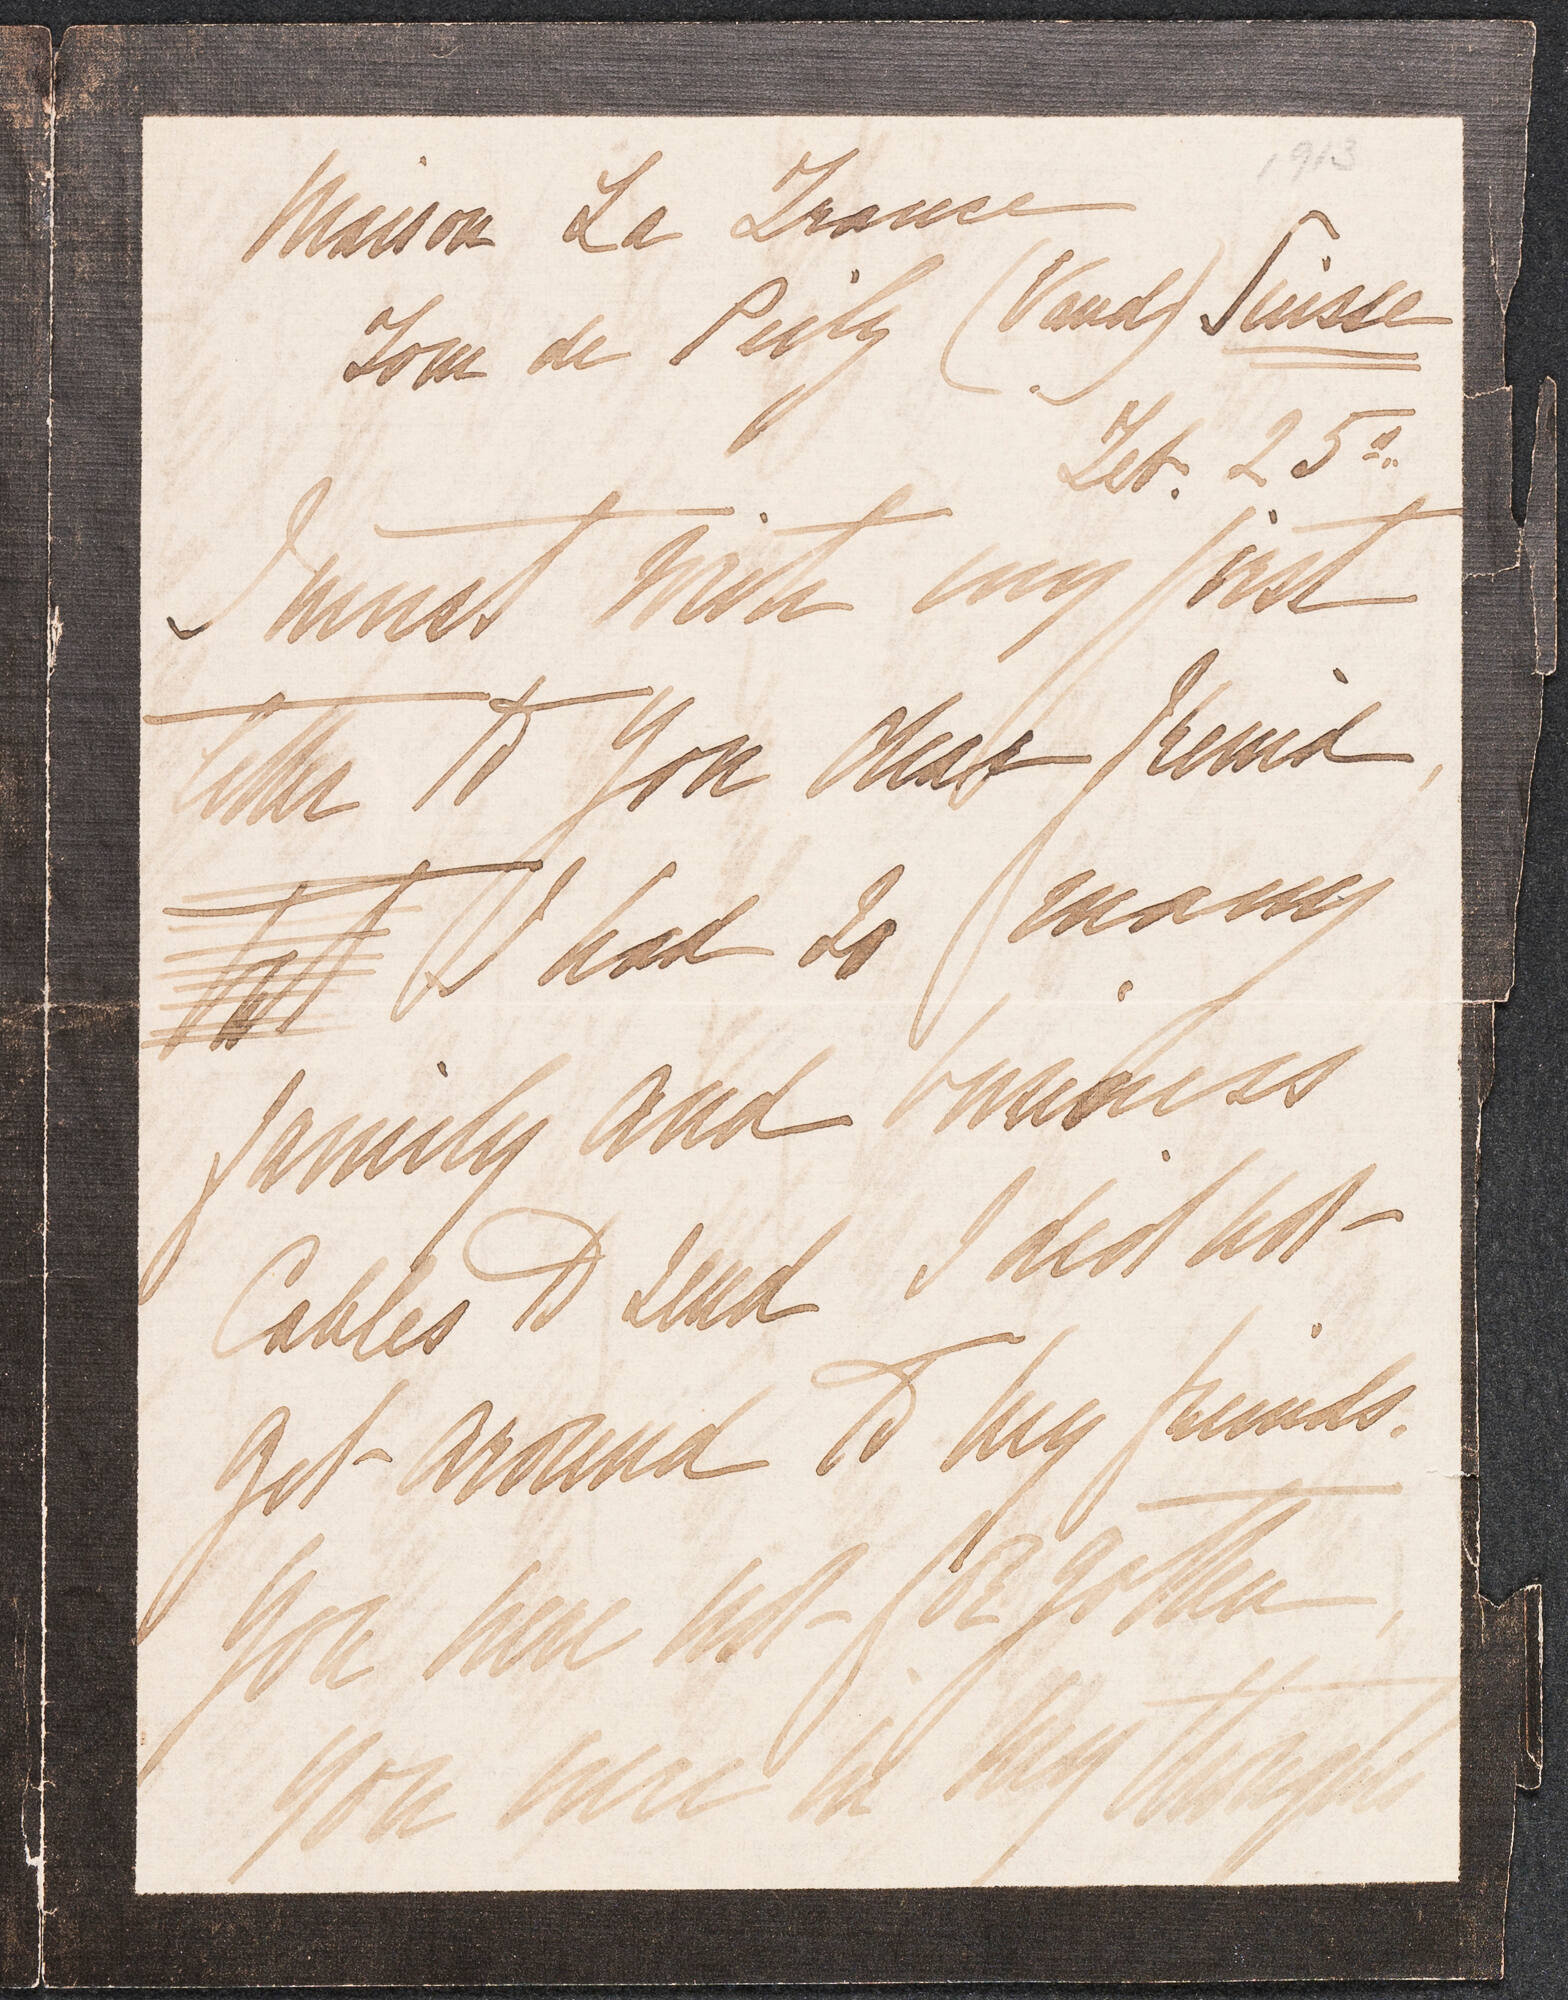 1913
Maison La France
Tour de Peilz (Vaud) Suisse
Feb. 25
I must write my first
letter to you dear friend,
I had so many
family and business
Cables to send I did not
get around to my friends.
You were not forgotten,
you were in my thoughts